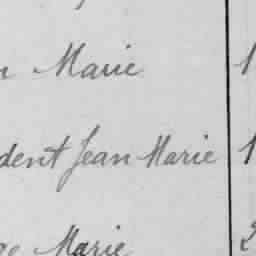 Marie 1
dent Jean Marie 1
Marie 2